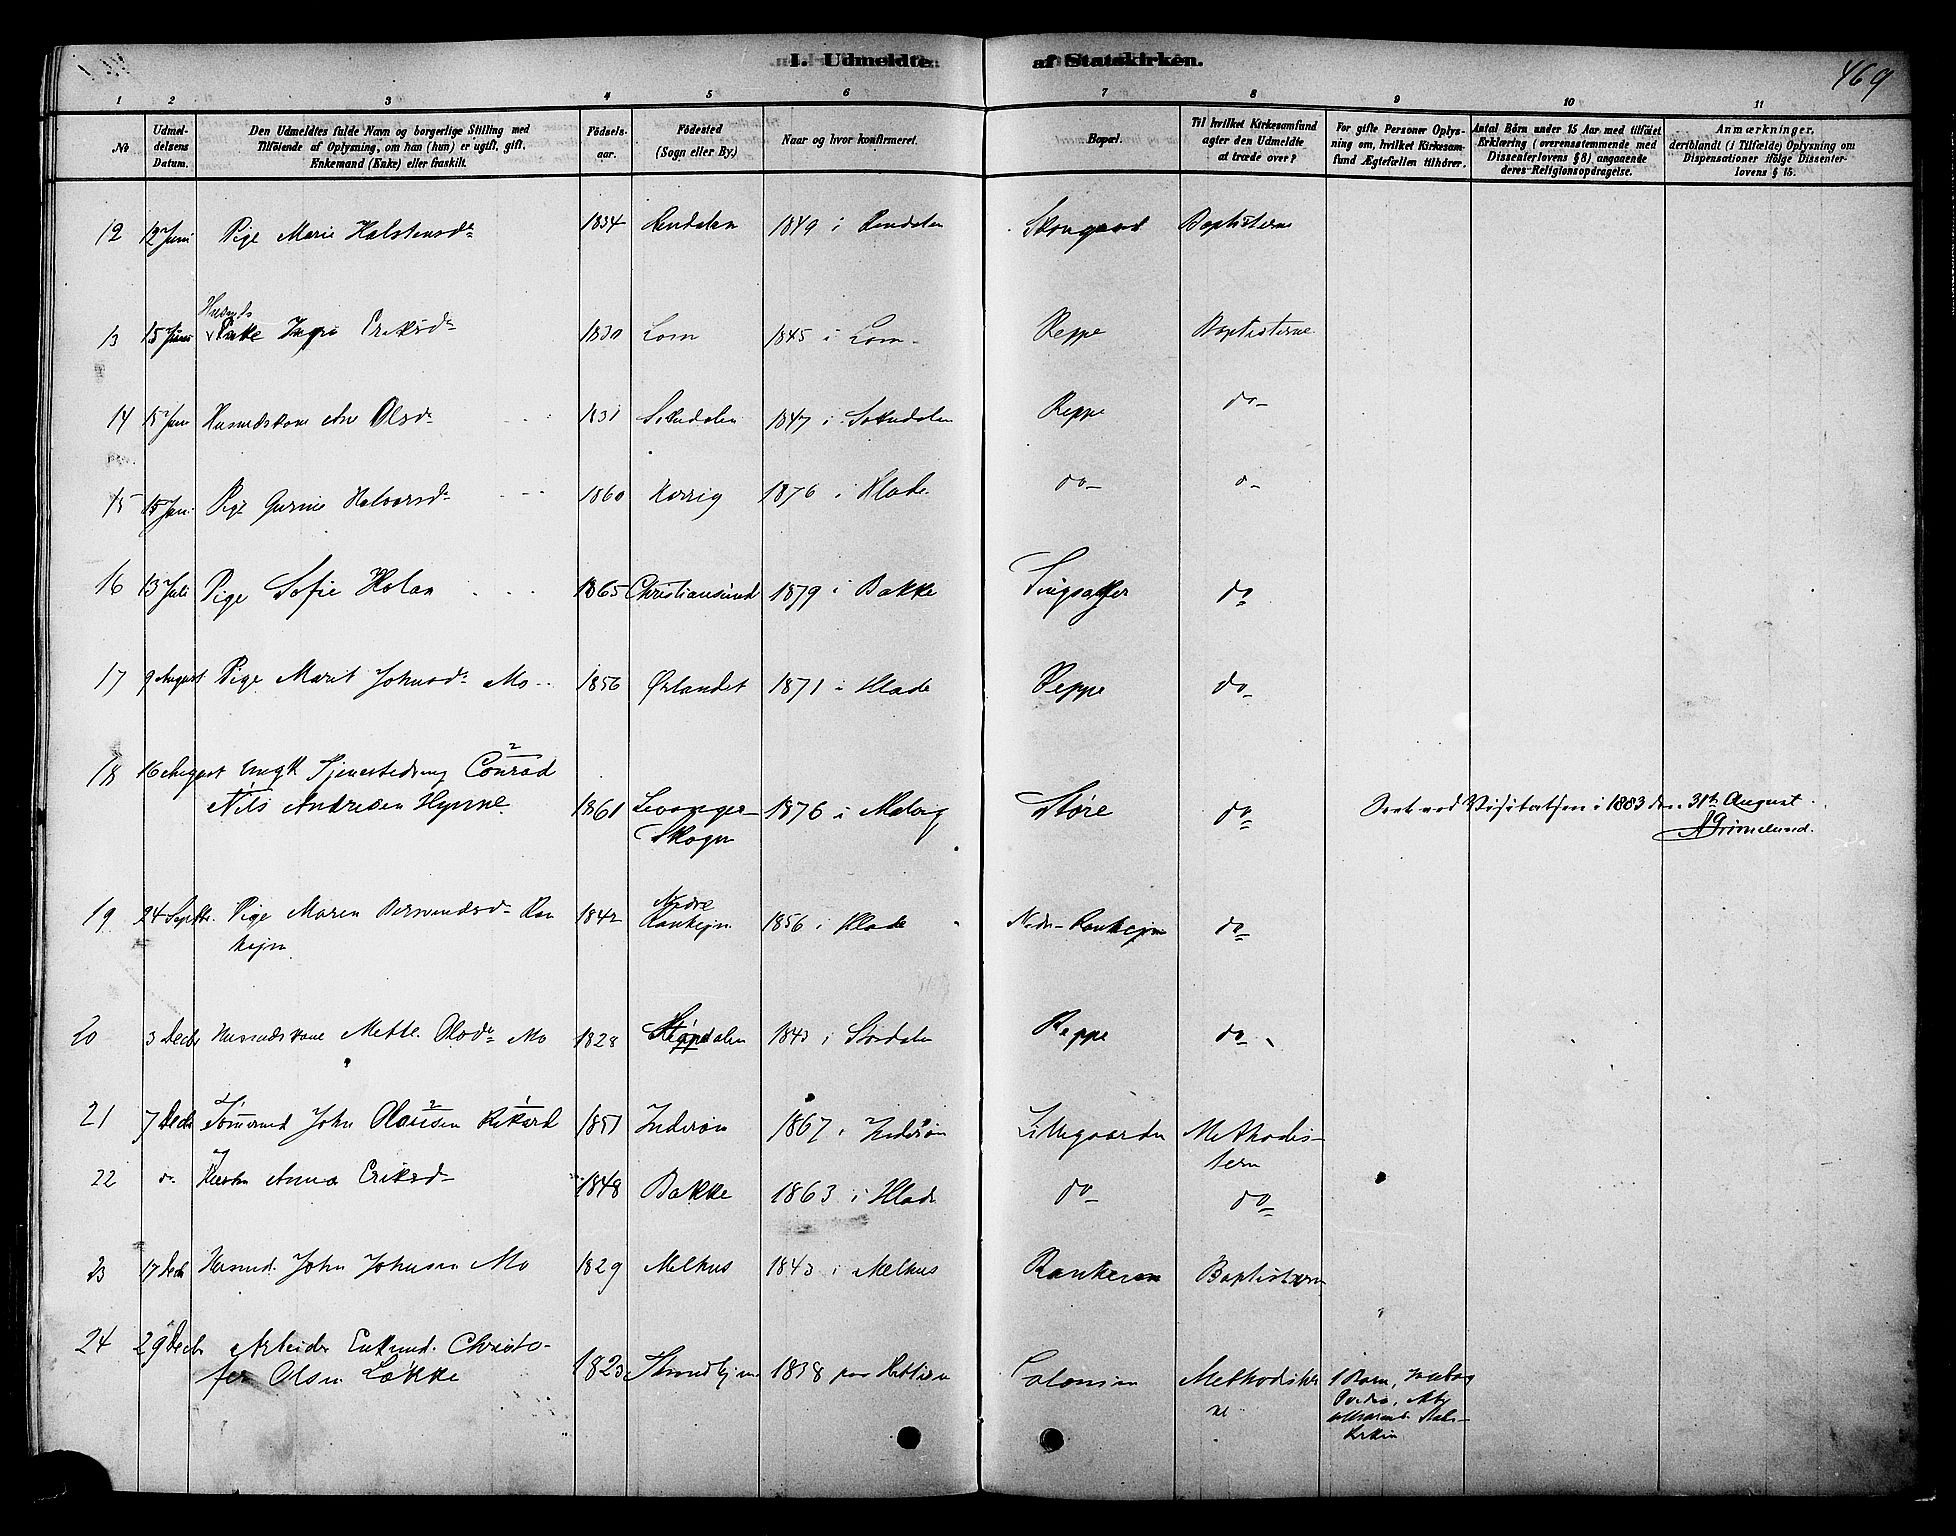 I. Udmeldte af Statskirken.
469
1 2 3 4 5 6 7 8 9 10 11
No
Udmel-
delsens
Datum.
Den Udmeldtes fulde Navn og borgerlige Stilling med
Tilføiende af Oplysning, om han (hun) er ugift, gift,
Enkemand (Enke) eller fraskilt.
Fødsels-
aar.
Fødested
(Sogn eller By.)
Naar og hvor konfirmeret.
Bopæl.
Til hvilket Kirkesamfund
agter den Udmeldte
at træde over?
For gifte Personer Oplys-
ning om, hvilket Kirkesam-
fund Ægtefællen tilhører.
Antal Børn under 15 Aar med tilføiet
Erklæring (overensstemmende med
Dissenterlovens § 8) angaaende
deres Religionsopdragelse.
Anmærkninger,
deriblandt (i Tilfælde) Oplysning om
Dispensationer ifølge Dissenter-
lovens § 15.
12 12 Juni Pige Marie Halstensdr 1834 Rendalen 1849 i Rendalen Skovgaard Baptisterne
Husmds
13 15 Juni Enke Eriksdr 1830 Lom 1845 i Lom Reppe Baptisterne
14 15 Juni Husmdskone Olsdr 1831 Soknedalen 1847 i Soknedalen Reppe do
15 15 Jun. Pige Gurine Halvorsdr 1860 1876 i Hlade do do
16 13 Juli Pige Sofie Holan 1865 Christiansund 1879 i Bakke Singsaker do
17 9 August Pige Marit Johnsdr Mo 1856 Ørlandet 1871 i Hlade Reppe do
18 16 August Ungk Tjenestedreng Conrad
Nils Andresen Hynne 1861 Levanger 1876 i Malvig Støre do Seet ved Visitatsen i 1883 den 31te August
Skogn Grimelund.
19 24 Septbr. Pige Maren Ran 1842 Nedre Rankejn 1856 i Hlade Nedre Rankejn do
kejn
20 3 Decbr Husmdskone Mette Olsdr Mo 1828 Størdalen 1843 i Størdalen Reppe do
21 7 Decbr Tømmermd John Olausen Rikard 1851 Inderøen 1867 i Inderøen Lillegaarden Methodis-
terne
22 do Hustru Anna Eriksdr 1848 Bakke 1863 i Hlade do do
23 17 Decbr Husmd. John Johnsen Mo 1829 Melhus 1843 i Melhus Rankejen Baptisterne
24 29 Decbr Arbeider Enkemd. Christo-
fer Olsen Løkke 1823 Throndhjem 1838 paa Hitteren Methodister
ne
1 Barn,
Stats-
kirken